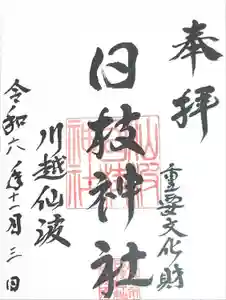 奉拝
重要文化財
日枝神社
川越仙波
令和六年十一月三日